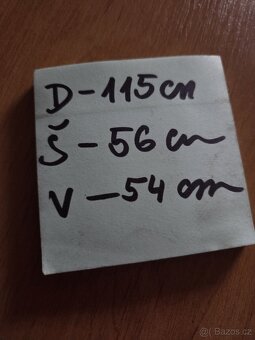 D-115cm
Š-56cm
V-54cm
© Bazos.cz